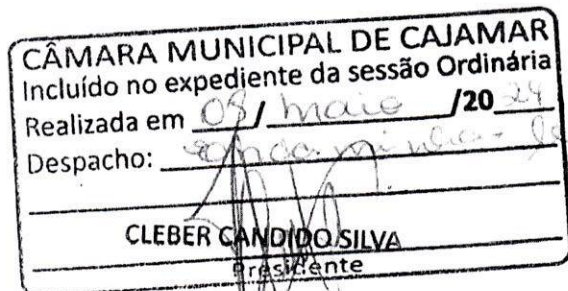 CÂMARA MUNICIPAL DE CAJAMAR
Incluído no expediente da sessão Ordinária
Realizada em 08 / maio /20 24
Despacho: encaminha-se
CLEBER CANDIDO SILVA
Presidente